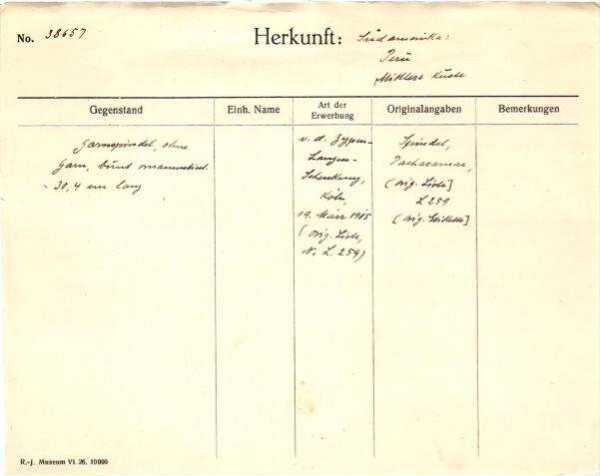 No. 38657
Herkunft: Südamerika:
Peru
Mittlere Küste
Gegenstand
Einh. Name
Art der
Erwerbung
Originalangaben
Bemerkungen
Garnspindel, ohne
Garn, bunt ornamentiert.
- 30,4 cm lang
v. d. Zypen-
Langen-
Schenkung,
Köln,
19. März 1905
(orig. Liste,
N. L. 259)
Spindel,
Pachacamac,
(orig. Liste]
L 259
(orig. Etikette]
R.-J. Museum VI. 26. 10000